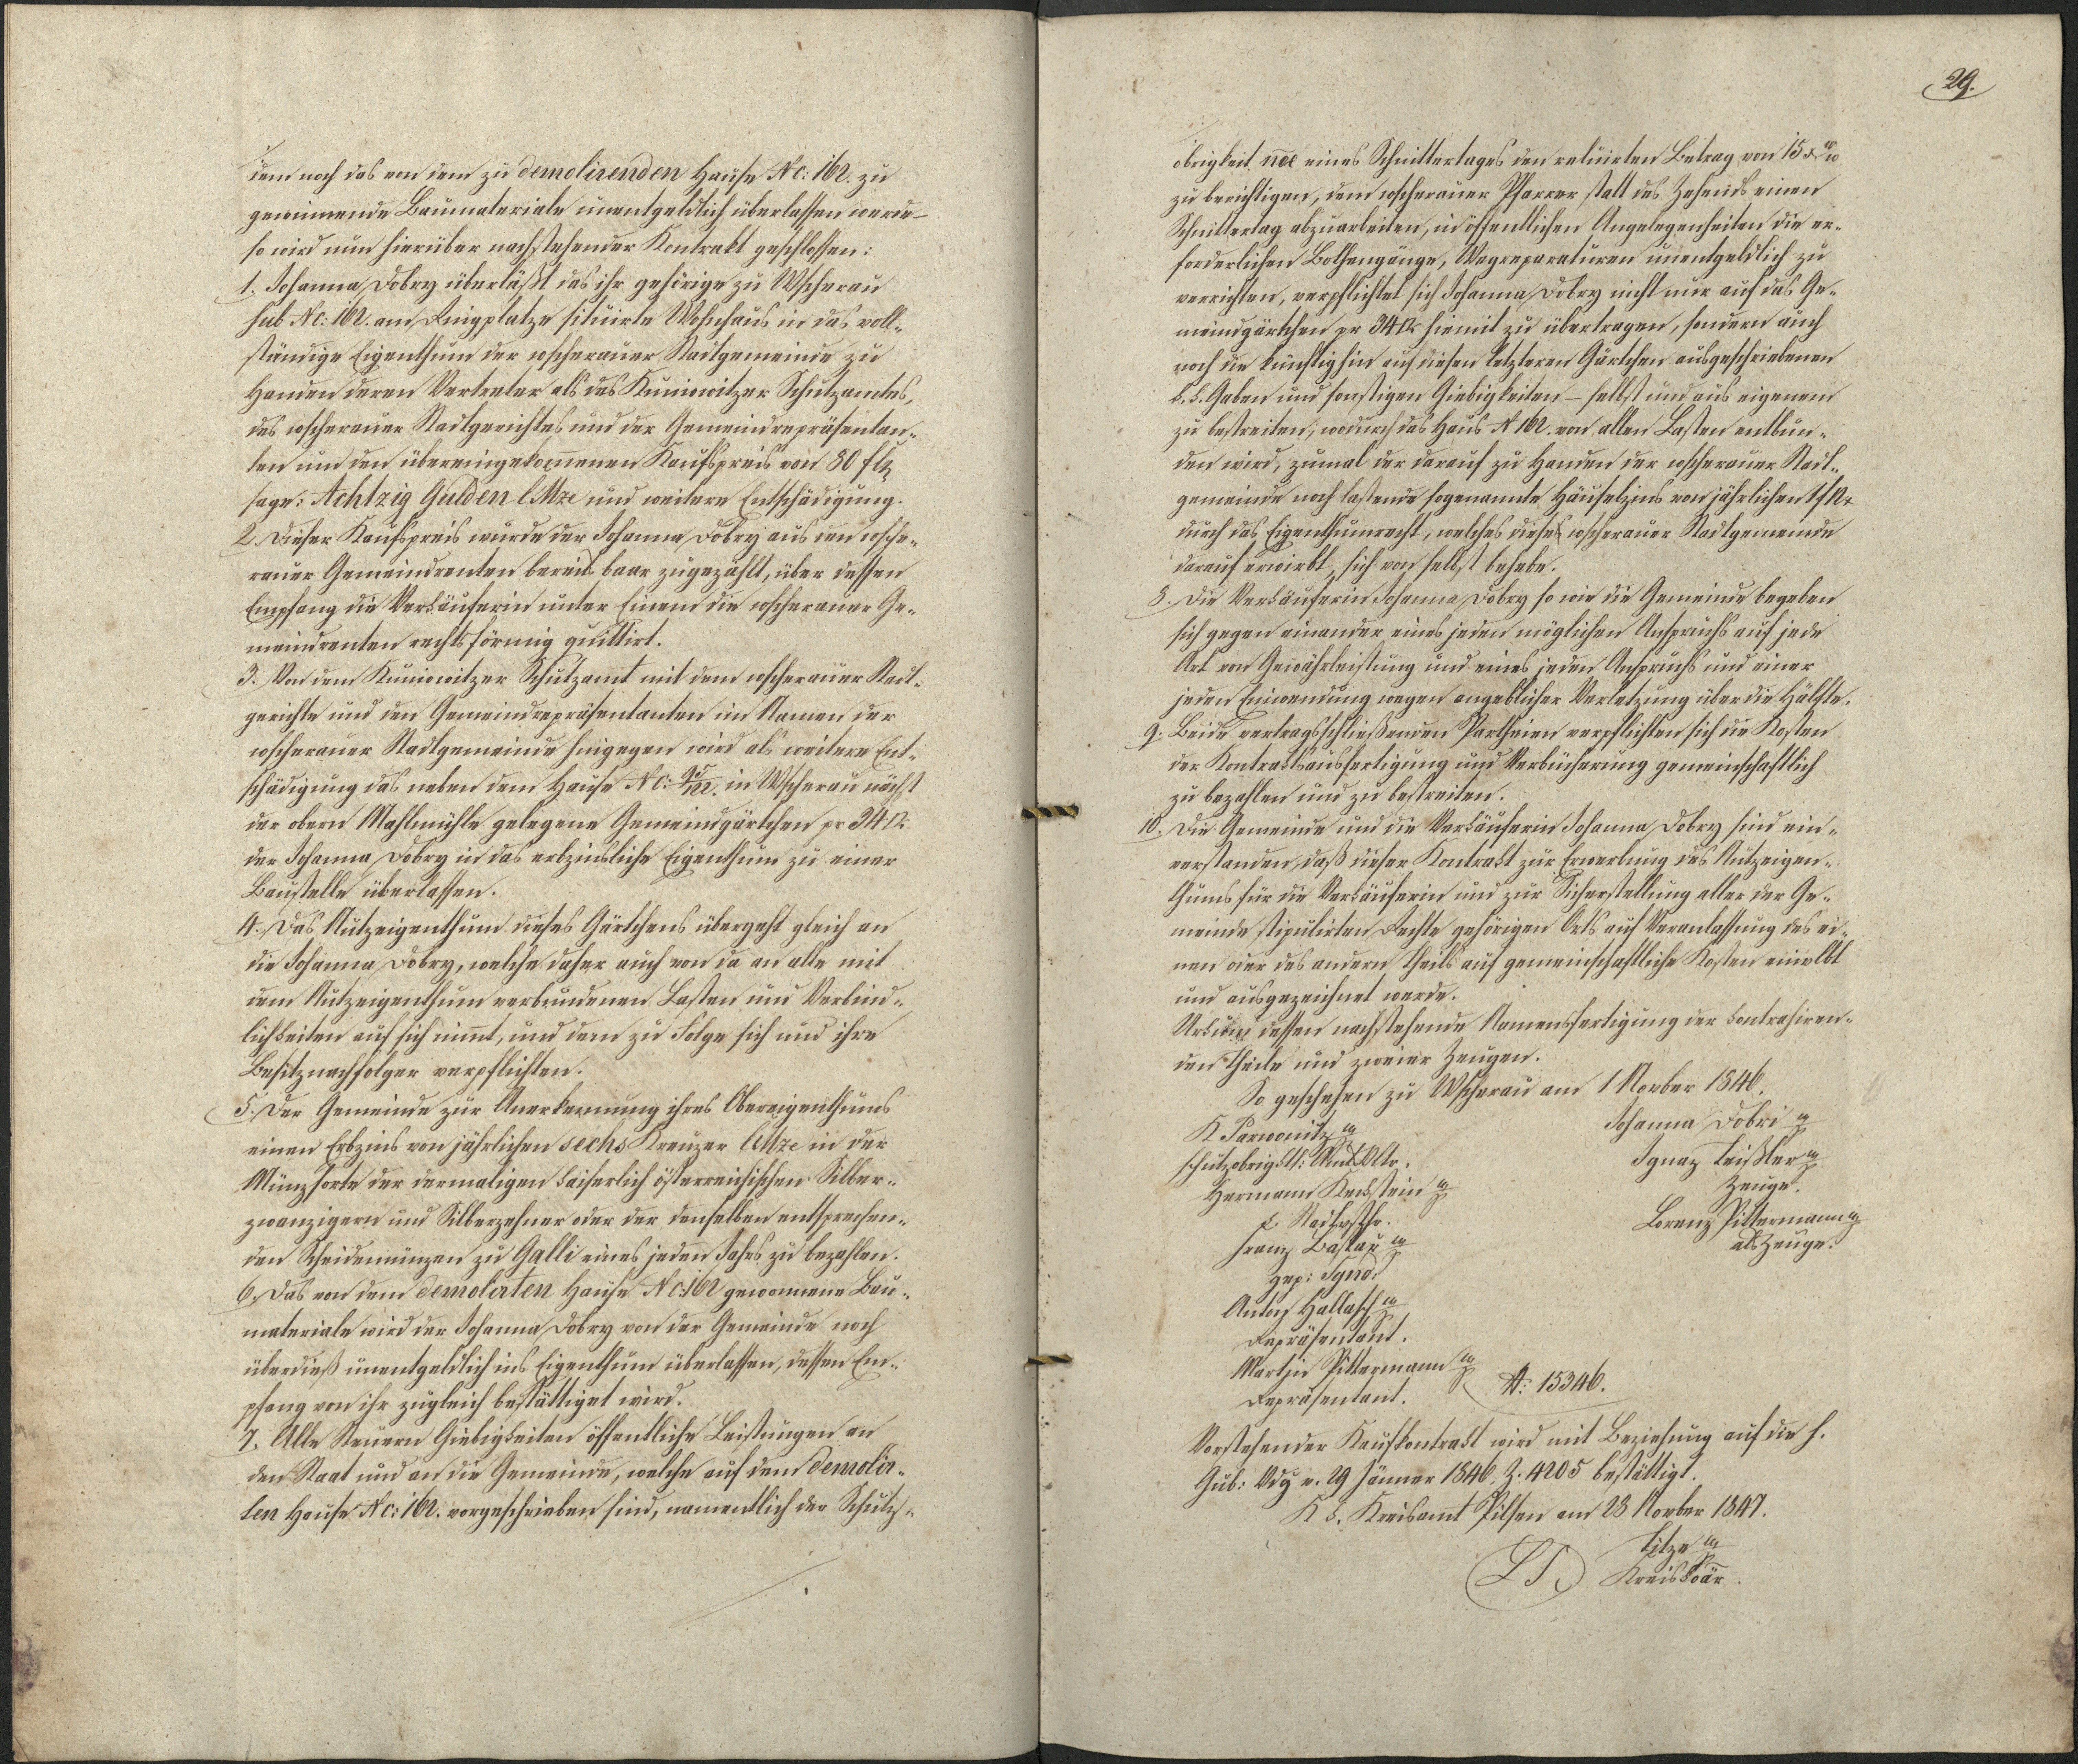 dem noch das von dem zu demolirenden Hause Nc: 162. zu
gewinnende Baumateriale unentgeldlich überlassen werde –
so wird nun hierüber nachstehender Kontrakt geschlossen:
1. Johanna Dobry überläßt das ihr gehörige zu Wscherau
sub Nc: 162. am Ringplatze situirte Wohnhaus in das voll-
ständige Eigenthum der wscherauer Stadtgemeinde zu
Handen deren Vertreter als des Kuniowitzer Schutzamtes,
des wscherauer Stadtgerichtes und der Gemeindrepräsentan-
ten um den übereingekom̄enen Kaufspreis von 80 f
sage: Achtzig Gulden CMze und weitere Entschädigung.
2. Dieser Kaufspreis wurde der Johanna Dobry aus den wsche-
rauer Gemeindrenten bereits baar zugezählt, über dessen
Empfang die Verkäuferin unter Einem die wscherauer Ge-
meindrenten rechtsförmig quittirt.
3. Von dem Kuniowitzer Schutzamt mit dem wscherauer Stadt-
gerichte und den Gemeindrepräsentanten im Namen der
wscherauer Stadtgemeinde hingegen wird als weitere Ent-
schädigung das neben dem Hause Nc: in Wscherau nächst
der obern Mahlmühle gelegene Gemeindgärtchen pr 34
der Johanna Dobry in das erbzinsliche Eigenthum zu einer
Baustelle überlassen.
4. Das Nutzeigenthum dieses Gärtchens übergeht gleich an
die Johanna Dobry, welche daher auch von da an alle mit
dem Nutzeigenthum verbundenen Lasten und Verbind-
lichkeiten auf sich nim̄t, und dem zu Folge sich und ihre
Besitznachfolger verpflichten.
5. Der Gemeinde zur Anerkennung ihres Obereigenthums
einen Erbzins von jährlichen sechs Kreuzer CMze in der
Münzsorte der dermaligen kaiserlich österreichischen Silber-
zwanzigern und Silberzehner oder der denselben entsprechen-
den Scheidemünzen zu Galli eines jeden Jahrs zu bezahlen.
6. Das von dem demolirten Hause Nc: 162 gewonnene Bau-
materiale wird der Johanna Dobry von der Gemeinde noch
überdieß unentgeldlich ins Eigenthum überlassen, dessen Em-
pfang von ihr zugleich bestättiget wird.
7. Alle Steuern Giebigkeiten öffentliche Leistungen an
den Staat und an die Gemeinde, welche auf dem demolir-
ten Hause Nc: 162. vorgeschrieben sind, namentlich der Schutz-
29.
obrigkeit eines Schnittertages den reluirten Betrag von 15
zu berichtigen, dem wscherauer Pfarrer statt des Zehends einen
Schnittertag abzuarbeiten, in öffentlichen Angelegenheiten die er-
forderlichen Bothengänge, Wegreparaturen unentgeldlich zu
verrichten, verpflichtet sich Johanna Dobry nicht nur auf das Ge-
meindgärtchen pr 34 hiemit zu übertragen, sondern auch
noch die künftighin auf diesen letzteren Gärtchen ausgeschriebenen
k. k. Gaben und sonstigen Giebigkeiten – selbst und aus eigenem
zu bestreiten, wodurch das Haus N 162. von allen Lasten entbun-
den wird, zumal der darauf zu Handen der wscherauer Stadt-
gemeinde noch lastende sogenannte Häuselzins von jährlichen
durch das Eigenthumrecht, welches diese wscherauer Stadtgemeinde
darauf erwirbt, sich von selbst behebe.
8. Die Verkäuferin Johanna Dobry so wie die Gemeinde begeben
sich gegen einander eines jeden möglichen Anspruchs auf jede
Art von Gewährleistung und eines jeden Anspruchs und einer
jeden Einwendung wegen angeblicher Verletzung über die Hälfte.
9. Beide vertragsschließenden Partheien verpflichten sich die Kosten
der Kontraktsausfertigung und Verbücherung gemeinschaftlich
zu bezahlen und zu bestreiten.
10. Die Gemeinde und die Verkäuferin Johanna Dobry sind ein-
verstanden, daß dieser Kontrakt zur Erwerbung des Nutzeigen-
thums für die Verkäuferin und zur Sicherstellung aller der Ge-
meinde stipulirten Rechte gehörigen Orts auf Veranlassung des ei-
nen oder des andern Theils auf gemeinschaftliche Kosten
und ausgezeichnet werde.
Urkund dessen nachstehende Namensfertigung der kontrahiren-
den Theile und zweier Zeugen.
So geschehen zu Wscherau am 1 Novber 1846.
K Parwonitz
schutzobrigktl:
Johanna Dobri
Ignaz Teißler
Zeuge.
Hermann Keckstein
Lorenz Pittermann
als Zeuge.
Franz Bastař
gep: Synd.
Anton Hallasch
Repräsentant.
Martin Pittermann
Repräsentant.
N: 15346.
Vorstehender Kaufkontrakt wird mit Beziehung auf die h.
Gub: Vdg v. 29 Jänner 1846. Z. 4205 bestättigt.
K k. Kreisamt Pilsen am 28 Novber 1847.
LS. Titze
Kreiskoär.